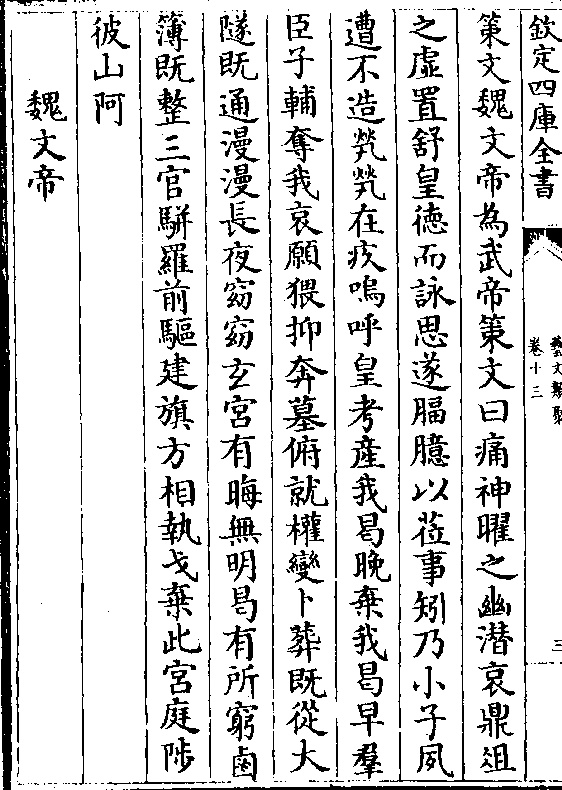 欽定四庫全書
藝文類聚
卷十三
三
策文魏文帝為武帝策文曰痛神曜之幽潛哀鼎俎
之虛置舒皇徳而詠思遂腷臆以莅事矧乃小子夙
遭不造煢煢在疚嗚呼皇考產我曷晚棄我曷早羣
臣子輔奪我哀願猥抑奔墓俯就權變卜葬既從大
隧既通漫漫長夜窈窈玄宮有晦無明曷有所窮鹵
簿既整三官駢羅前驅建旗方相執戈棄此宮庭陟
彼山阿
魏文帝